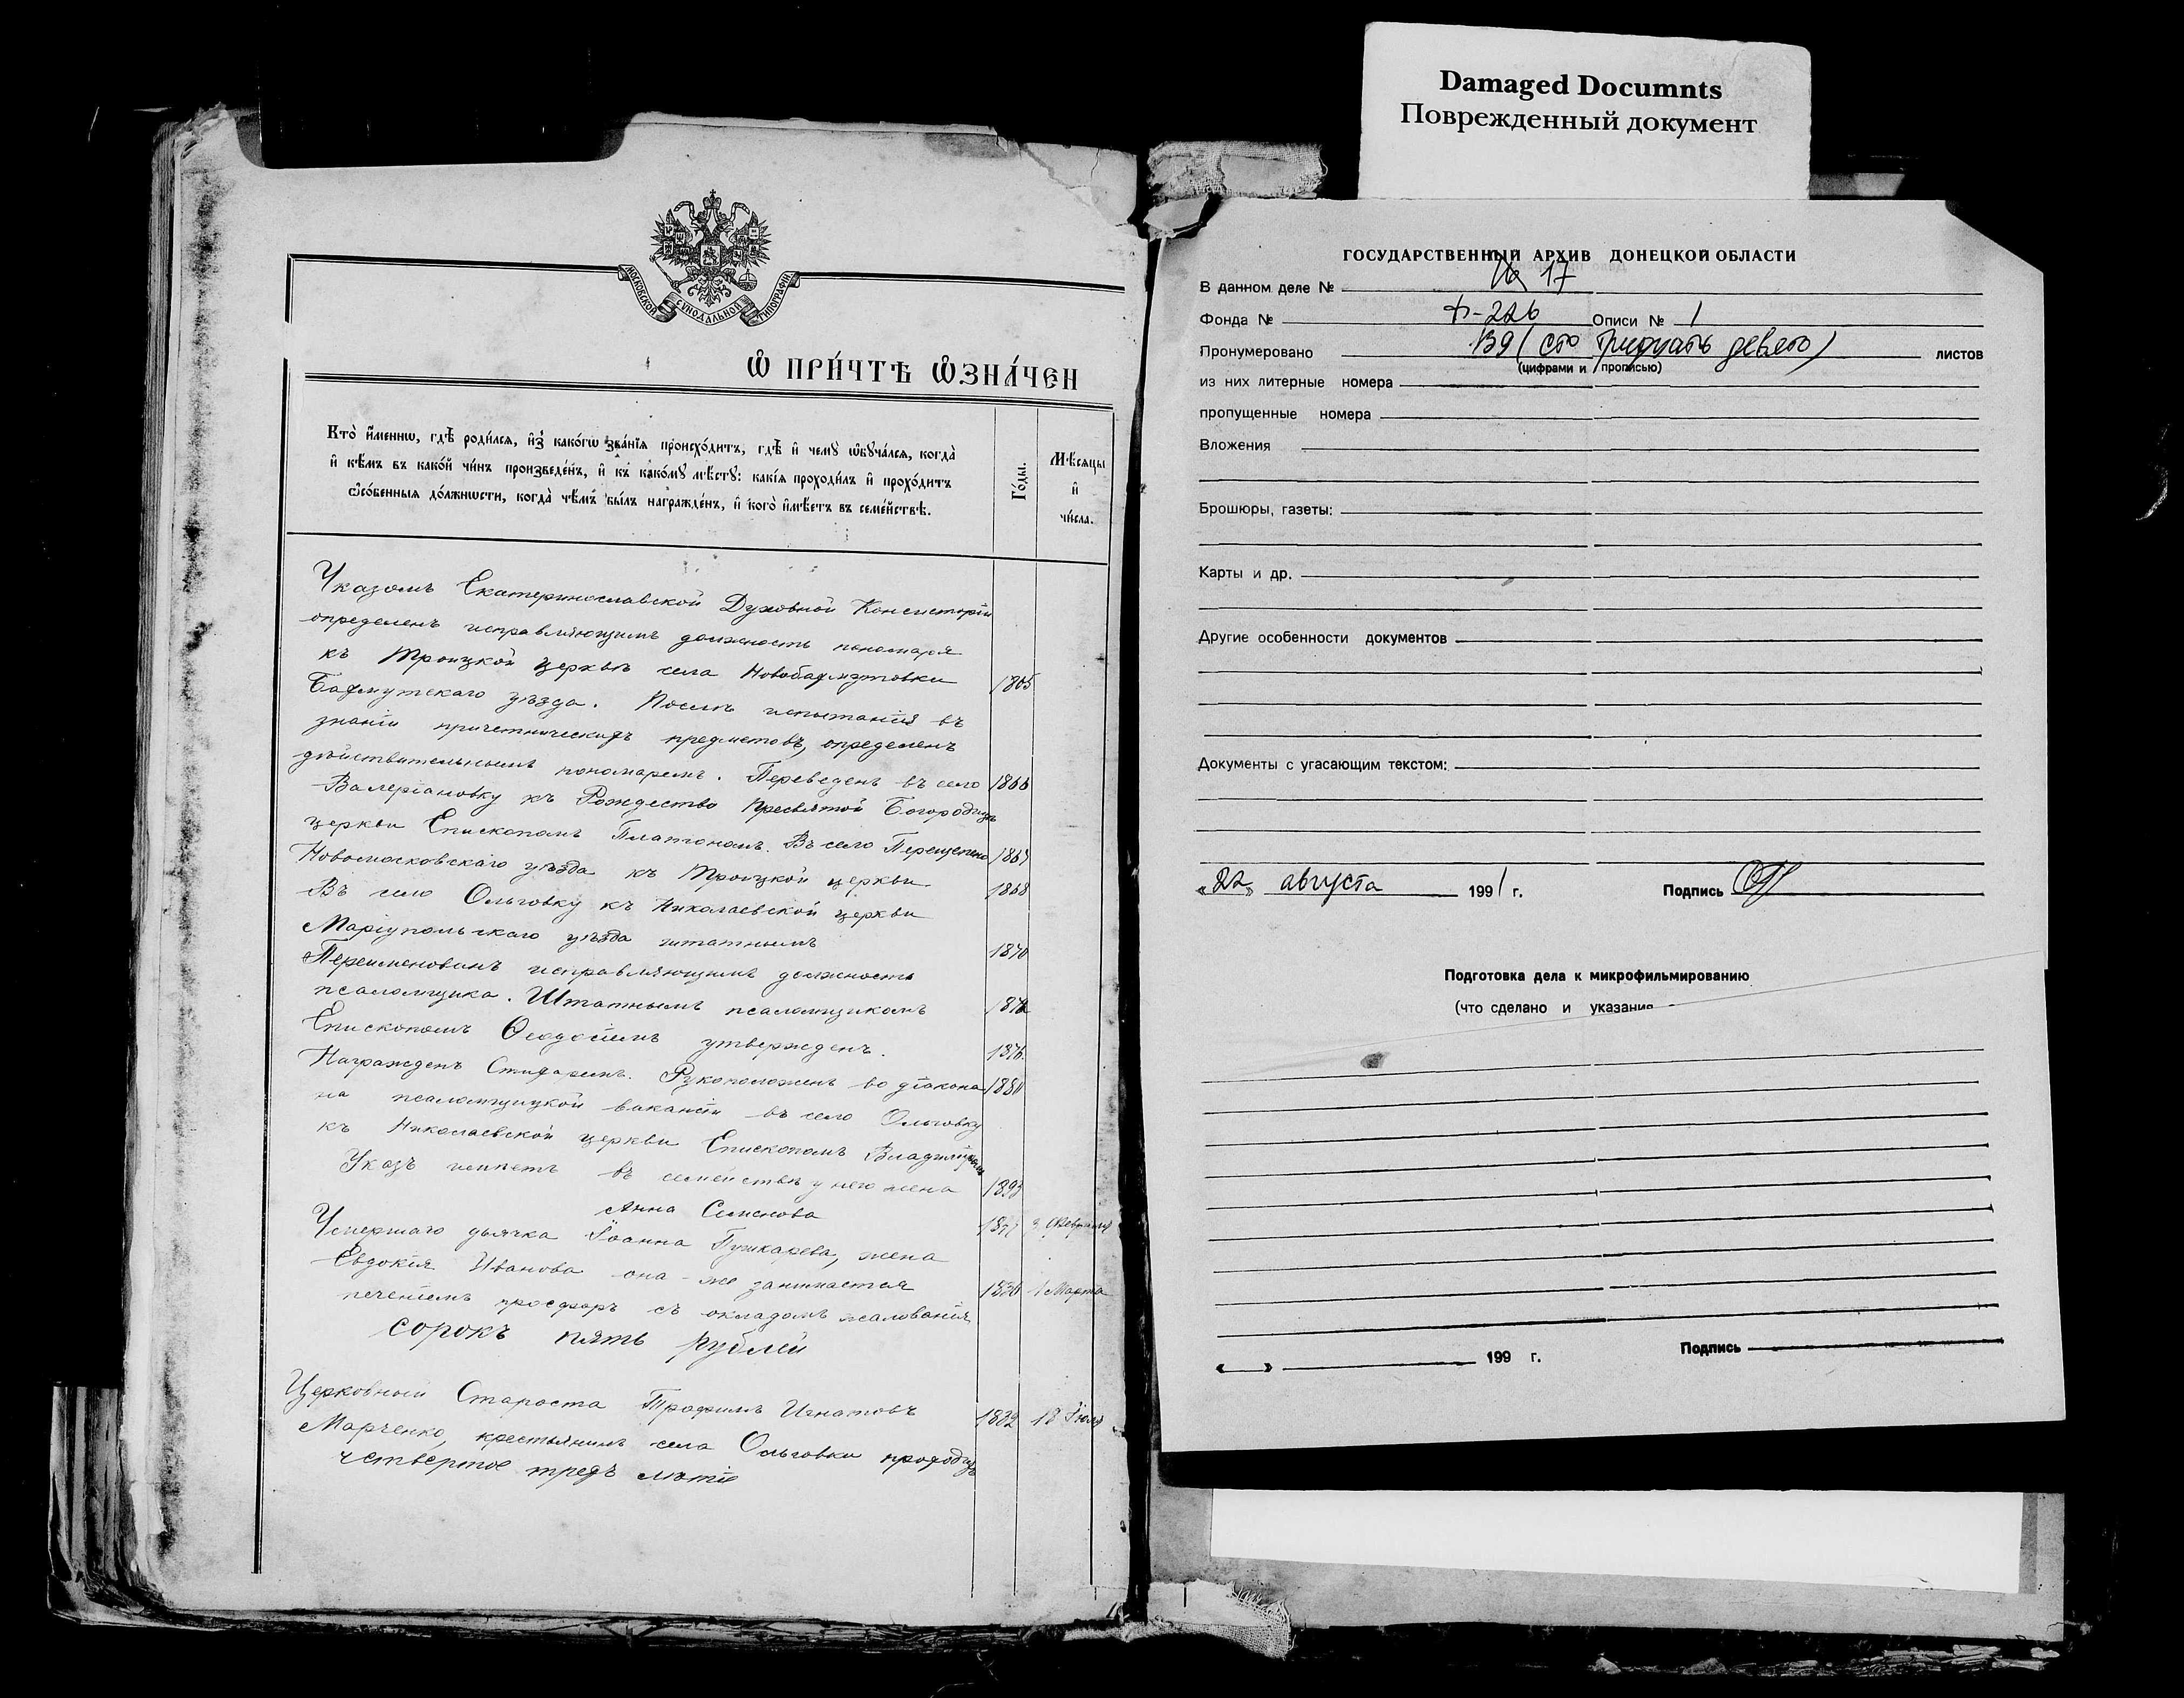 Damaged Documnts
Поврежденный документ
МОСКОВСКОЙ СѴНОДАЛЬНОЙ ТИПОГРАФІИ
Ѡ҆ ПРИ́ЧТѢ Ѡ҆ЗНА́ЧЕН
Кто̀ и҆́меннѡ, гдѣ̀ роди́лсѧ, и҆з̾ како́гѡ зва́нїѧ происхо́дитъ, гдѣ̀ и҆ чемꙋ̀ ѡ҆бꙋча́лсѧ, когда̀
и҆ кѣ́мъ въ како́й чи́нъ произведе́нъ, и҆ къ како́мꙋ мѣ́стꙋ: какі́ѧ проходи́лъ и҆ прохо́дитъ
ѻ҆со́бенныѧ до́лжности, когда̀ чѣ́мъ бы́лъ награжде́нъ, и҆ кого̀ и҆мѣ́етъ въ семе́йствѣ.
Го́ды.
Мѣ́сѧцы
и҆
чи́сла.
Указомъ Екатеринославской Духовной Консисторіи
опредѣленъ исправляющимъ должность пономаря
къ Троицкой церкви села Новобахмутовки 1865
Бахмутскаго уѣзда. Послѣ испытанія въ
знаніи причетническихъ предметовъ, опредѣленъ
дѣйствительнымъ пономаремъ. Переведенъ въ село 1866
Валеріановку къ Рождество Пресвятой Богородицы
церкви Епископомъ Платономъ. Въ село Перещепено 1867
Новомосковскаго уѣзда къ Троицкой церкви 1868
Въ село Ольговку къ Николаевской церкви
Маріупольскаго уѣзда штатнымъ 1870
Переименованъ исправляющимъ должность
псаломщика. Штатнымъ псаломщикомъ 1872
Епископомъ Ѳеодосіемъ утвержденъ. 1876.
Награжденъ Стихаремъ. Рукоположенъ во діакона 1880
на псаломщицкой вакансіи въ село Ольговку
къ Николаевской церкви Епископомъ Владиміромъ
Указъ имѣетъ въ семействѣ у него жена 1893
Анна Семенова 3 Февраля
Умершаго дьячка Іоанна Пушкарева, жена
Евдокія Иванова она-же занимается 1836 1 Марта
печеніемъ просфоръ съ окладомъ жалованія
сорокъ пять рублей
Церковный Староста Трофимъ Игнатовъ 1832 18 Іюля
Марченко, крестьянинъ села Ольговки проходитъ
четвертое трехъ лѣтіе
ГОСУДАРСТВЕННЫЙ АРХИВ ДОНЕЦКОЙ ОБЛАСТИ
В данном деле № 17
Фонда № Ф-226 Описи № 1
Пронумеровано 139 (сто тридцать девять) листов
(цифрами и прописью)
из них литерные номера
пропущенные номера
Вложения
Брошюры, газеты:
Карты и др.
Другие особенности документов
Документы с угасающим текстом:
«22» августа 1991 г. Подпись
Подготовка дела к микрофильмированию
(что сделано и указание
« » 199 г. Подпись